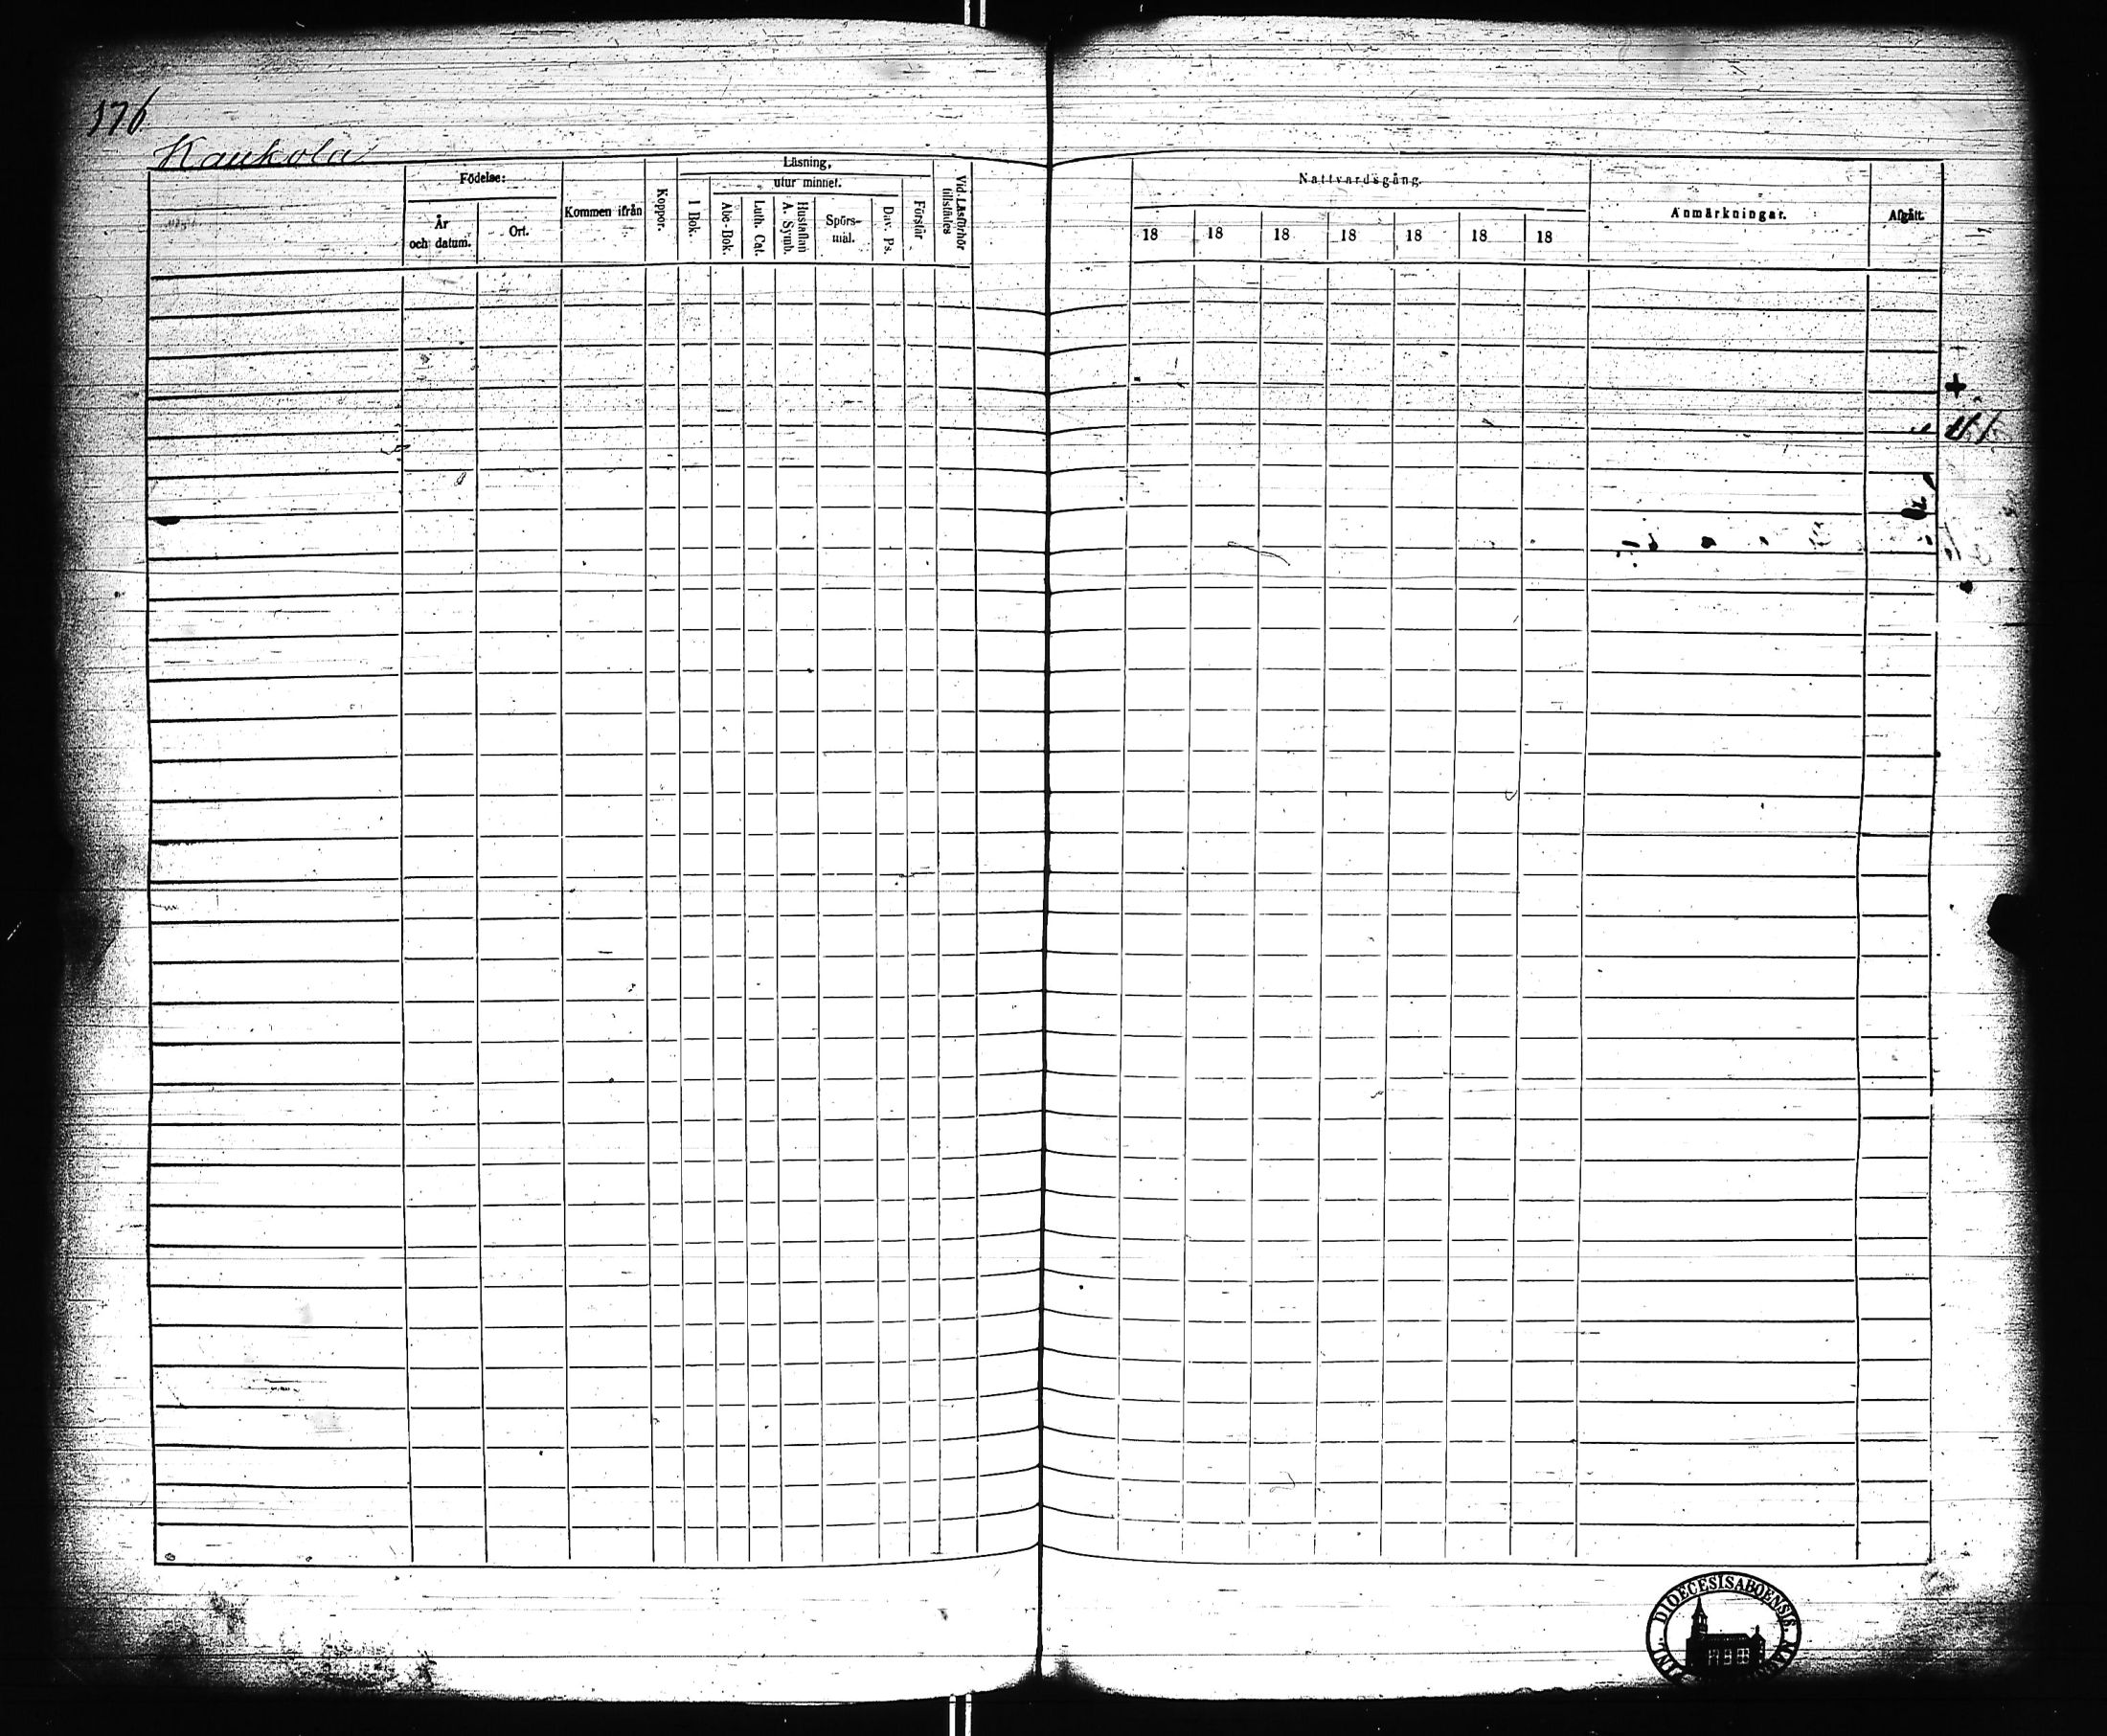 176
Kaukola
Födelse:
År
och datum.
Ort.
Kommen ifrån
Koppor.
Läsning,
utur minnet.
I Bok.
Abc-Bok.
Luth. Cat.
Hustaflan
A. Symb.
Spörs-
mål.
Dav. Ps.
Förstår
Vid Läsförhör
tillstädes
Nattvardsgång.
18 18 18 18 18 18 18
Anmärkningar.
Afgått.
DIOECESIS ABOENSIS